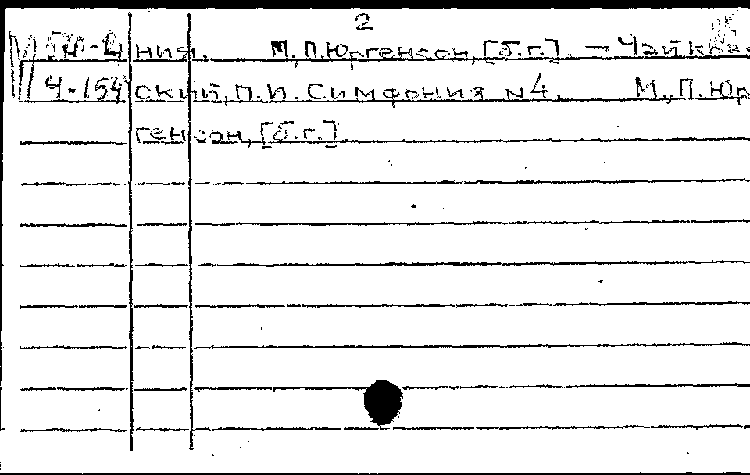 2
ния. М., П. Юргенсон, [б.г.]. — Чайков-
Ч-154 ский, П.И. Симфония N4. М., П. Юр
генсон, [б.г.]